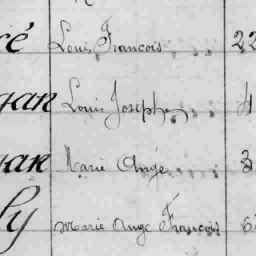 cé Louis Francois 22
gan Louis Joseph 4
gan Marie Ange 3
ly Marie Ange François 6